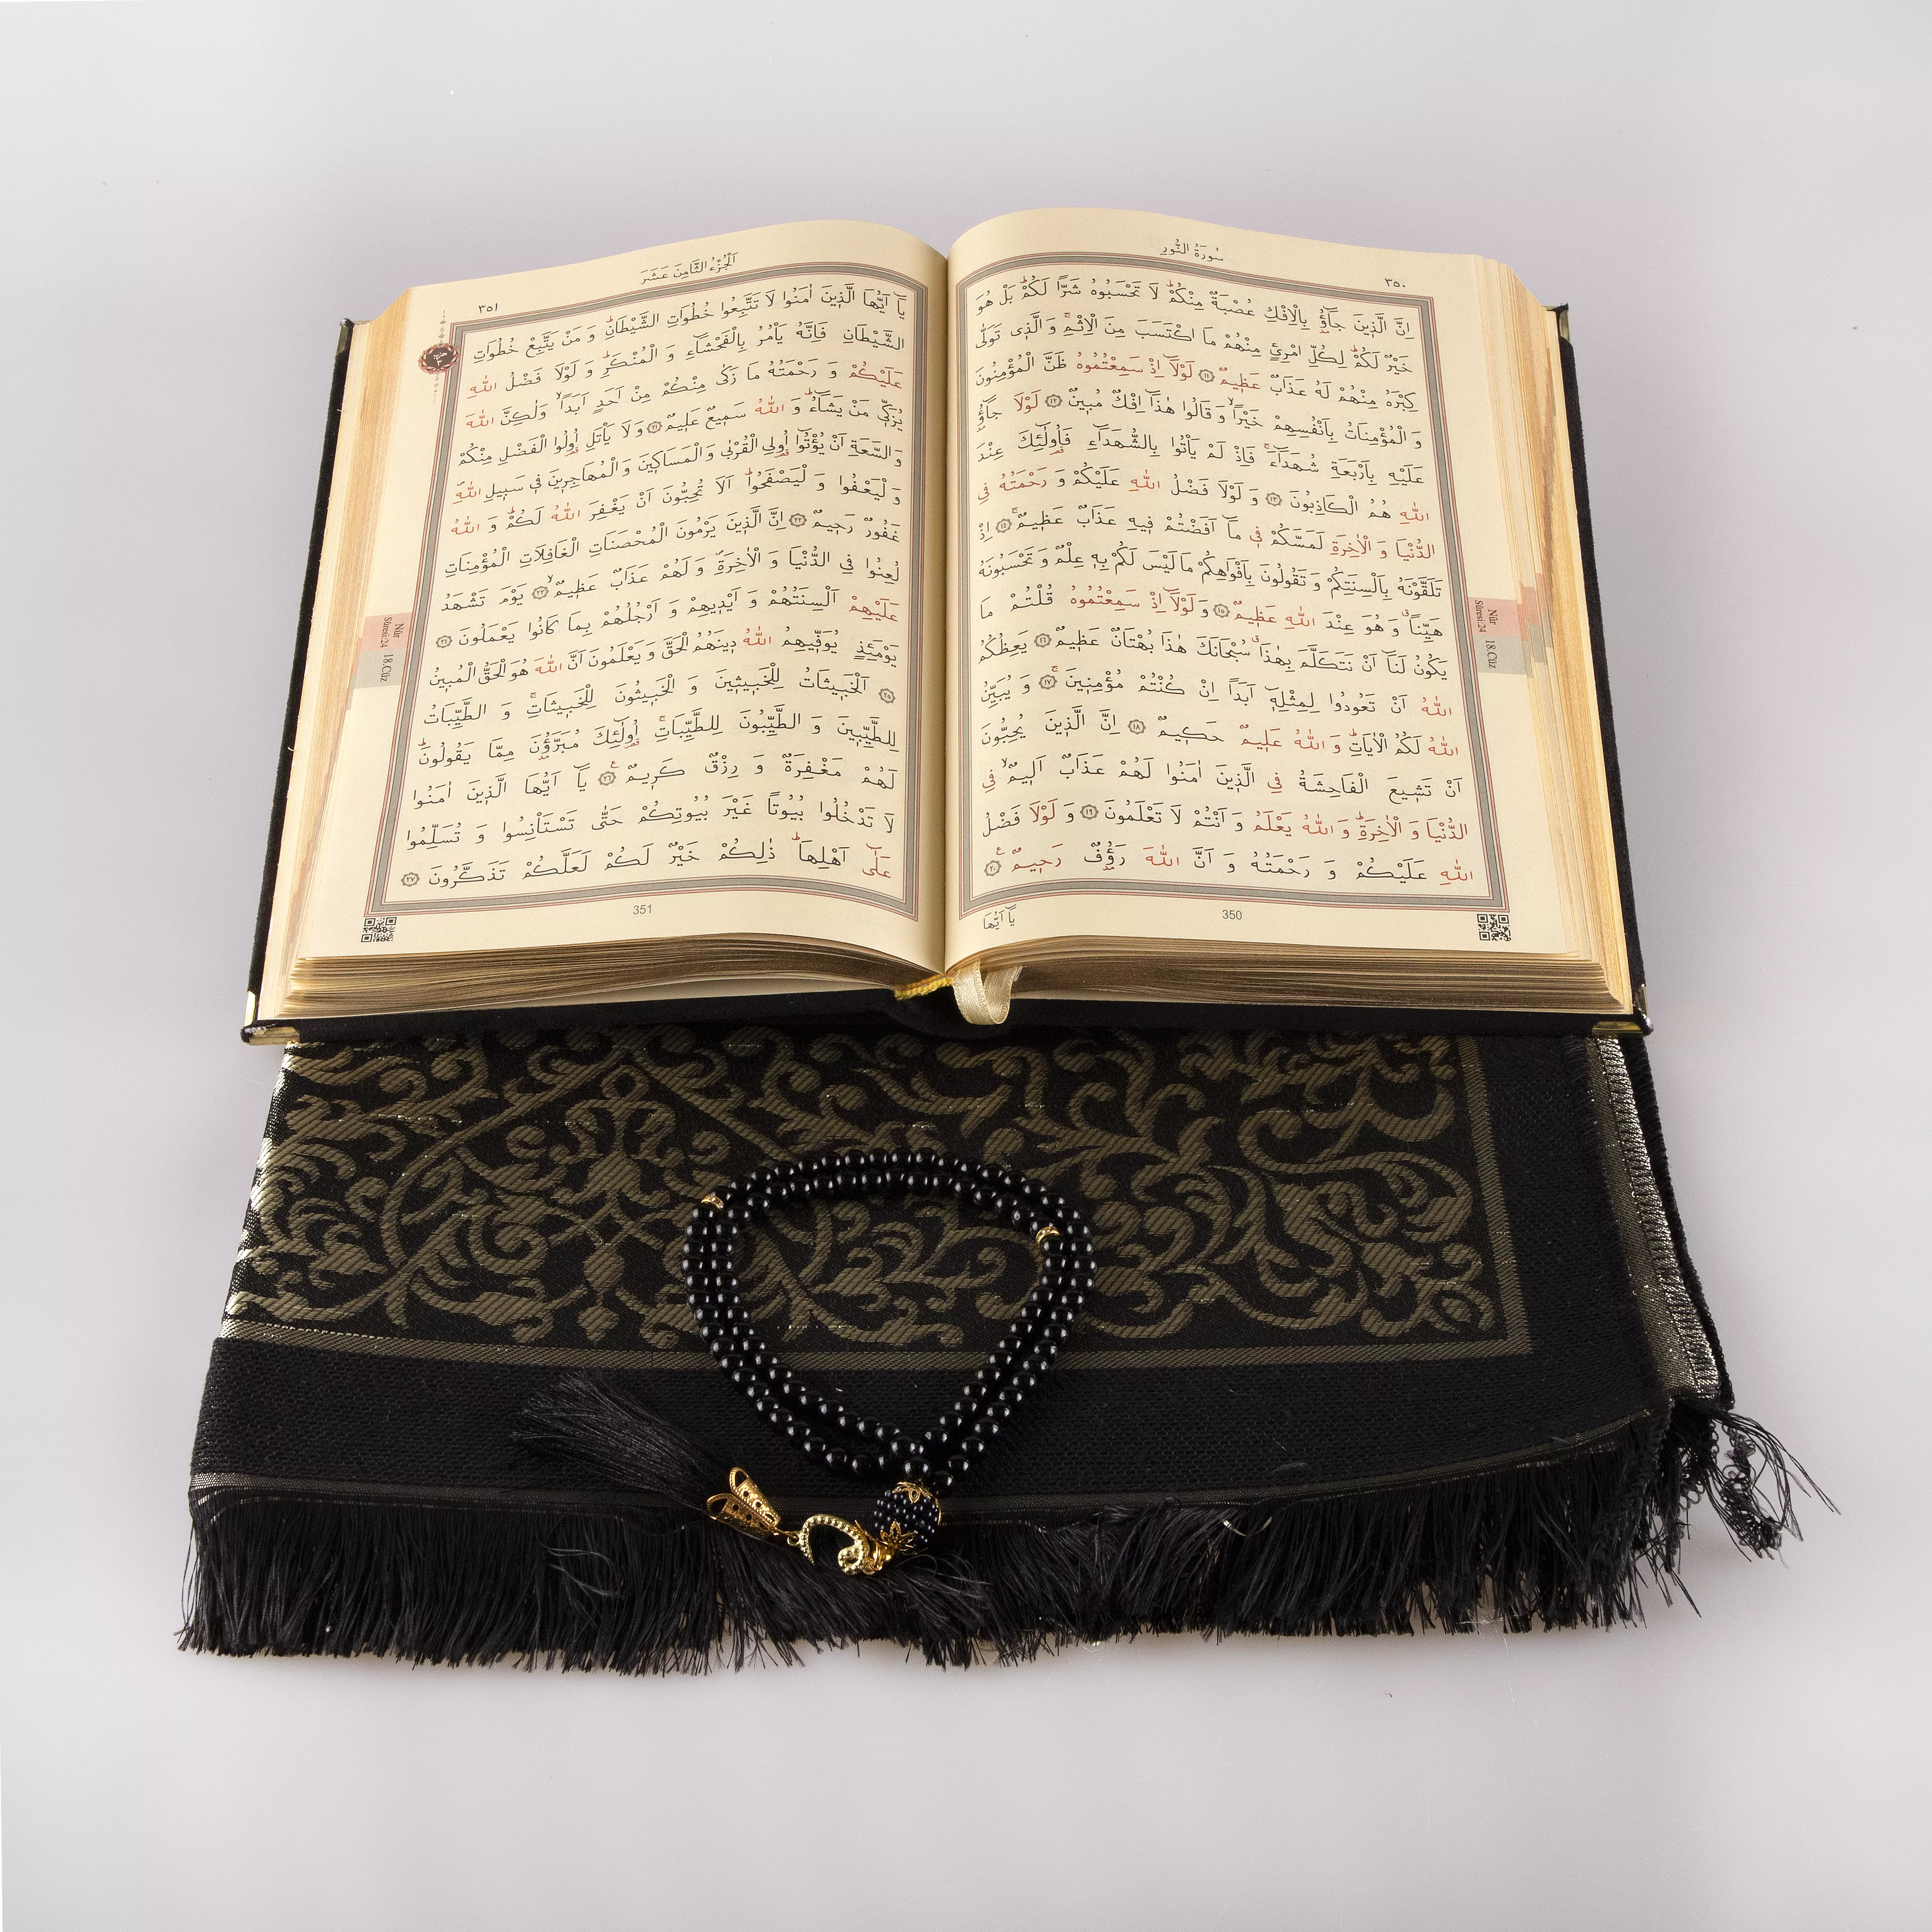 سُورَةُ النُّورِ
٣٥٠
اِنَّ الَّذ۪ينَ جَٓاؤُ۫ بِالْاِفْكِ عُصْبَةٌ مِنْكُمْۜ لَا تَحْسَبُوهُ شَراًّ لَكُمْۜ بَلْ هُوَ
خَيْرٌ لَكُمْۜ لِكُلِّ امْرِئٍ مِنْهُمْ مَا اكْتَسَبَ مِنَ الْاِثْمِۚ وَ الَّذ۪ي تَوَلّٰى
كِبْرَهُ مِنْهُمْ لَهُ عَذَابٌ عَظ۪يمٌ ﴿١١﴾ لَوْلَٓا اِذْ سَمِعْتُمُوهُ ظَنَّ الْمُؤْمِنُونَ
وَ الْمُؤْمِنَاتُ بِاَنْفُسِهِمْ خَيْراًۙ وَ قَالُوا هٰذَٓا اِفْكٌ مُب۪ينٌ ﴿١٢﴾ لَوْلَا جَٓاؤُ۫
عَلَيْهِ بِاَرْبَعَةِ شُهَدَٓاءَۚ فَاِذْ لَمْ يَأْتُوا بِالشُّهَدَٓاءِ فَاُو۬لٰٓئِكَ عِنْدَ
اللّٰهِ هُمُ الْكَاذِبُونَ ﴿١٣﴾ وَ لَوْلَا فَضْلُ اللّٰهِ عَلَيْكُمْ وَ رَحْمَتُهُ فِي
الدُّنْيَا وَ الْاٰخِرَةِ لَمَسَّكُمْ ف۪ي مَٓا اَفَضْتُمْ ف۪يهِ عَذَابٌ عَظ۪يمٌۚ ﴿١٤﴾ اِذْ
تَلَقَّوْنَهُ بِاَلْسِنَتِكُمْ وَ تَقُولُونَ بِاَفْوَاهِكُمْ مَا لَيْسَ لَكُمْ بِه۪ عِلْمٌ وَ تَحْسَبُونَهُ
هَيِّناًۗ وَ هُوَ عِنْدَ اللّٰهِ عَظ۪يمٌ ﴿١٥﴾ وَ لَوْلَٓا اِذْ سَمِعْتُمُوهُ قُلْتُمْ مَا
يَكُونُ لَنَٓا اَنْ نَتَكَلَّمَ بِهٰذَاۗ سُبْحَانَكَ هٰذَا بُهْتَانٌ عَظ۪يمٌ ﴿١٦﴾ يَعِظُكُمُ
اللّٰهُ اَنْ تَعُودُوا لِمِثْلِه۪ٓ اَبَداً اِنْ كُنْتُمْ مُؤْمِن۪ينَۚ ﴿١٧﴾ وَ يُبَيِّنُ
اللّٰهُ لَكُمُ الْاٰيَاتِۜ وَ اللّٰهُ عَل۪يمٌ حَك۪يمٌ ﴿١٨﴾ اِنَّ الَّذ۪ينَ يُحِبُّونَ
اَنْ تَش۪يعَ الْفَاحِشَةُ فِي الَّذ۪ينَ اٰمَنُوا لَهُمْ عَذَابٌ اَل۪يمٌۙ فِي
الدُّنْيَا وَ الْاٰخِرَةِۜ وَ اللّٰهُ يَعْلَمُ وَ اَنْتُمْ لَا تَعْلَمُونَ ﴿١٩﴾ وَ لَوْلَا فَضْلُ
اللّٰهِ عَلَيْكُمْ وَ رَحْمَتُهُ وَ اَنَّ اللّٰهَ رَؤُ۫فٌ رَح۪يمٌ ﴿٢٠﴾ ع
يَٓا اَيُّهَا
350
Nûr
Sûresi:24
18.Cüz
اَلْجُزْءُ الثَّامِنَ عَشَرَ
٣٥١
يَٓا اَيُّهَا الَّذ۪ينَ اٰمَنُوا لَا تَتَّبِعُوا خُطُوَاتِ الشَّيْطَانِۜ وَ مَنْ يَتَّبِعْ خُطُوَاتِ
الشَّيْطَانِ فَاِنَّهُ يَأْمُرُ بِالْفَحْشَٓاءِ وَ الْمُنْكَرِۜ وَ لَوْلَا فَضْلُ اللّٰهِ
عَلَيْكُمْ وَ رَحْمَتُهُ مَا زَكٰى مِنْكُمْ مِنْ اَحَدٍ اَبَداًۙ وَلٰكِنَّ اللّٰهَ
يُزَكّ۪ي مَنْ يَشَٓاءُۜ وَ اللّٰهُ سَم۪يعٌ عَل۪يمٌ ﴿٢١﴾ وَ لَا يَأْتَلِ اُو۬لُوا الْفَضْلِ مِنْكُمْ
وَ السَّعَةِ اَنْ يُؤْتُٓوا اُو۬لِي الْقُرْبٰى وَ الْمَسَاك۪ينَ وَ الْمُهَاجِر۪ينَ ف۪ي سَب۪يلِ اللّٰهِۖ
وَ لْيَعْفُوا وَ لْيَصْفَحُواۜ اَلَا تُحِبُّونَ اَنْ يَغْفِرَ اللّٰهُ لَكُمْۜ وَ اللّٰهُ
غَفُورٌ رَح۪يمٌ ﴿٢٢﴾ اِنَّ الَّذ۪ينَ يَرْمُونَ الْمُحْصَنَاتِ الْغَافِلَاتِ الْمُؤْمِنَاتِ
لُعِنُوا فِي الدُّنْيَا وَ الْاٰخِرَةِۖ وَ لَهُمْ عَذَابٌ عَظ۪يمٌۙ ﴿٢٣﴾ يَوْمَ تَشْهَدُ
عَلَيْهِمْ اَلْسِنَتُهُمْ وَ اَيْد۪يهِمْ وَ اَرْجُلُهُمْ بِمَا كَانُوا يَعْمَلُونَ ﴿٢٤﴾
يَوْمَئِذٍ يُوَفّ۪يهِمُ اللّٰهُ د۪ينَهُمُ الْحَقَّ وَ يَعْلَمُونَ اَنَّ اللّٰهَ هُوَ الْحَقُّ الْمُب۪ينُ
﴿٢٥﴾ اَلْخَب۪يثَاتُ لِلْخَب۪يث۪ينَ وَ الْخَب۪يثُونَ لِلْخَب۪يثَاتِۚ وَ الطَّيِّبَاتُ
لِلطَّيِّب۪ينَ وَ الطَّيِّبُونَ لِلطَّيِّبَاتِۚ اُو۬لٰٓئِكَ مُبَرَّؤُ۫نَ مِمَّا يَقُولُونَۜ
لَهُمْ مَغْفِرَةٌ وَ رِزْقٌ كَر۪يمٌ ﴿٢٦﴾ ع يَٓا اَيُّهَا الَّذ۪ينَ اٰمَنُوا
لَا تَدْخُلُوا بُيُوتاً غَيْرَ بُيُوتِكُمْ حَتّٰى تَسْتَأْنِسُوا وَ تُسَلِّمُوا
عَلٰٓى اَهْلِهَاۜ ذٰلِكُمْ خَيْرٌ لَكُمْ لَعَلَّكُمْ تَذَكَّرُونَ ﴿٢٧﴾
351
Nûr
Sûresi:24
18.Cüz